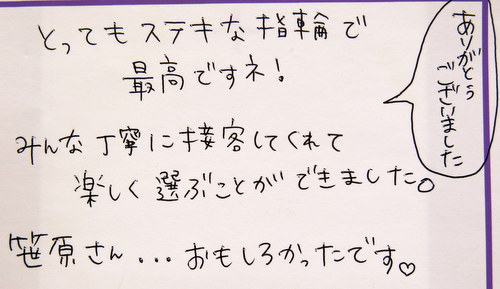 とってもステキな指輪で
最高ですネ!
みんな丁寧に接客してくれて
楽しく選ぶことができました。
笹原さん...おもしろかったです♡
ありがとう
ございました